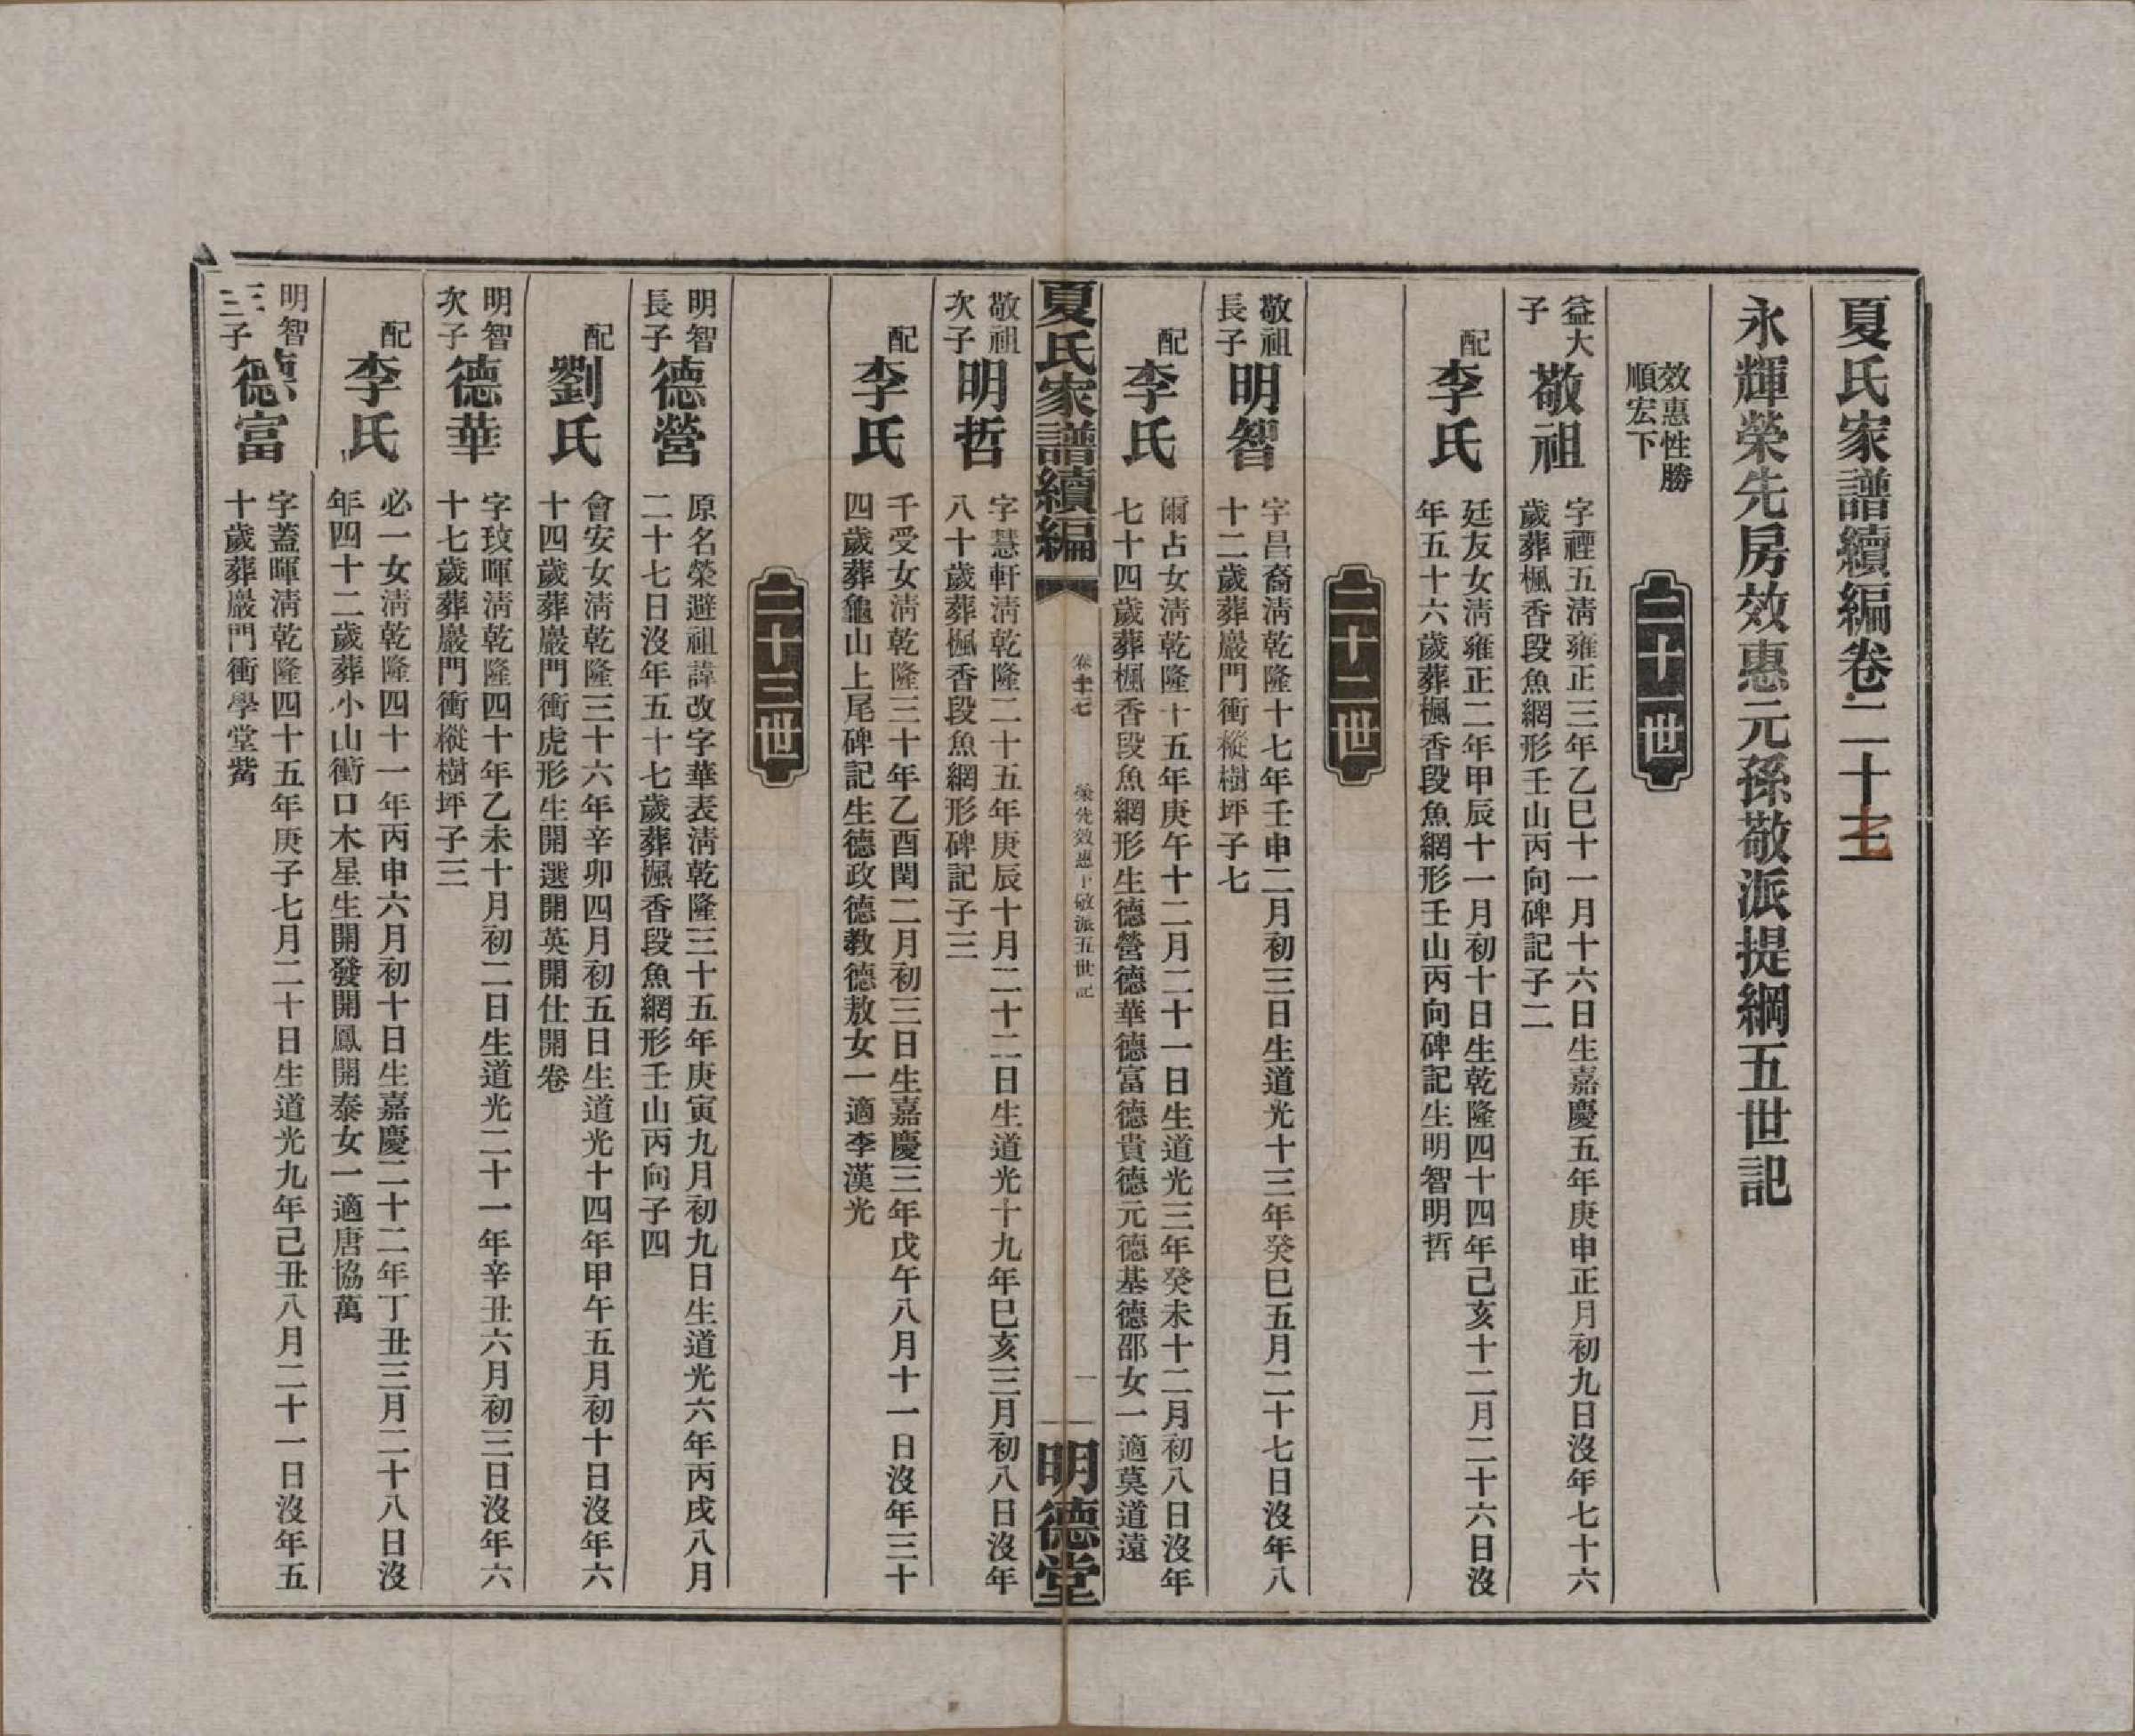 夏氏家譜續編卷二十七
永輝榮先房效惠元孫敬派提綱五世記
效惠性勝
順宏下
二十一世
益大
子
敬祖
字禋五淸雍正三年乙巳十一月十六日生嘉慶五年庚申正月初九日沒年七十六
歲葬楓香段魚網形壬山丙向碑記子二
配
李氏
廷友女淸雍正二年甲辰十一月初十日生乾隆四十四年己亥十二月二十六日沒
年五十六歲葬楓香段魚網形壬山丙向碑記生明智明哲
二十二世
敬祖
長子
明智
字昌裔淸乾隆十七年壬申二月初三日生道光十三年癸巳五月二十七日沒年八
十二歲葬巖門衝樅樹坪子七
配
李氏
爾占女淸乾隆十五年庚午十二月二十一日生道光三年癸未十二月初八日沒年
七十四歲葬楓香段魚網形生德營德華德富德貴德元德基德邵女一適莫道遠
夏氏家譜續編
卷二十七
榮先效惠下敬派五世記
一
明德堂
敬祖
次子
明哲
字慧軒淸乾隆二十五年庚辰十月二十二日生道光十九年巳亥三月初八日沒年
八十歲葬楓香段魚網形碑記子三
配
李氏
千受女淸乾隆三十年乙酉閏二月初三日生嘉慶三年戊午八月十一日沒年三十
四歲葬龜山上尾碑記生德政德教德敖女一適李漢光
二十三世
明智
長子
德營
原名榮避祖諱改字華表淸乾隆三十五年庚寅九月初九日生道光六年丙戌八月
二十七日沒年五十七歲葬楓香段魚網形壬山丙向子四
配
劉氏
會安女淸乾隆三十六年辛卯四月初五日生道光十四年甲午五月初十日沒年六
十四歲葬巖門衝虎形生開選開英開仕開卷
明智
次子
德華
字玟暉淸乾隆四十年乙未十月初二日生道光二十一年辛丑六月初三日沒年六
十七歲葬巖門衝樅樹坪子三
配
李氏
必一女淸乾隆四十一年丙申六月初十日生嘉慶二十二年丁丑三月二十八日沒
年四十二歲葬小山衝口木星生開發開鳳開泰女一適唐協萬
明智
三子
德富
字蓋暉淸乾隆四十五年庚子七月二十日生道光九年己丑八月二十一日沒年五
十歲葬巖門衝學堂嵴